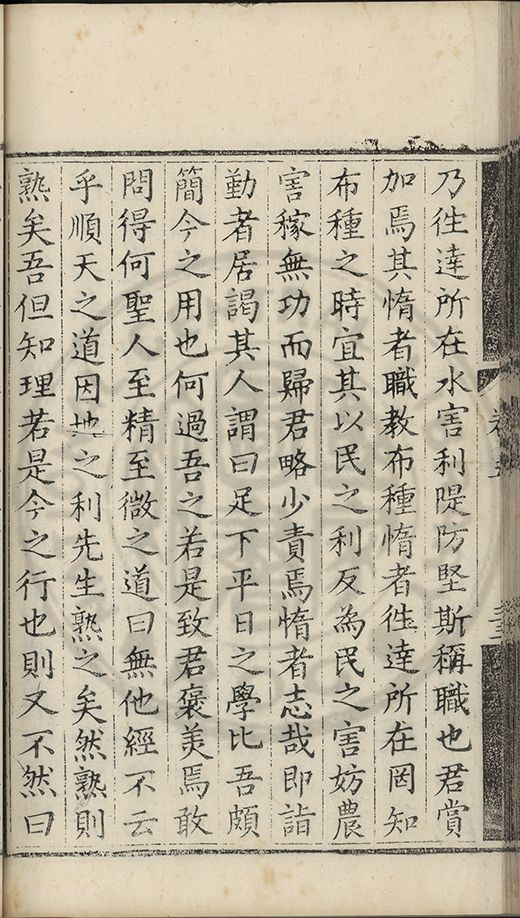 乃徃達所在水害利隄防堅斯稱職也君賞
加焉其惰者職教布種惰者徃達所在罔知
布種之時宜其以民之利反為民之害妨農
害稼無功而歸君略少責焉惰者志哉即詣
勤者居謁其人謂曰足下平日之學比吾頗
簡今之用也何過吾之若是致君褒美焉敢
問得何聖人至精至微之道曰無他經不云
乎順天之道因地之利先生熟之矣然熟則
熟矣吾但知理若是今之行也則又不然曰